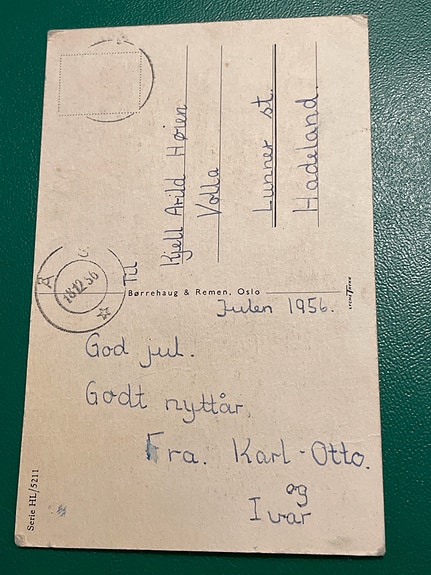 Til
Kjell Arild Høien
Volla
Lunner st.
Hadeland.
Å G
18 12 56
Børrehaug & Remen, Oslo
Julen 1956.
God jul.
Godt nyttår.
Fra. Karl-Otto.
og
Ivar
Serie HL/5211